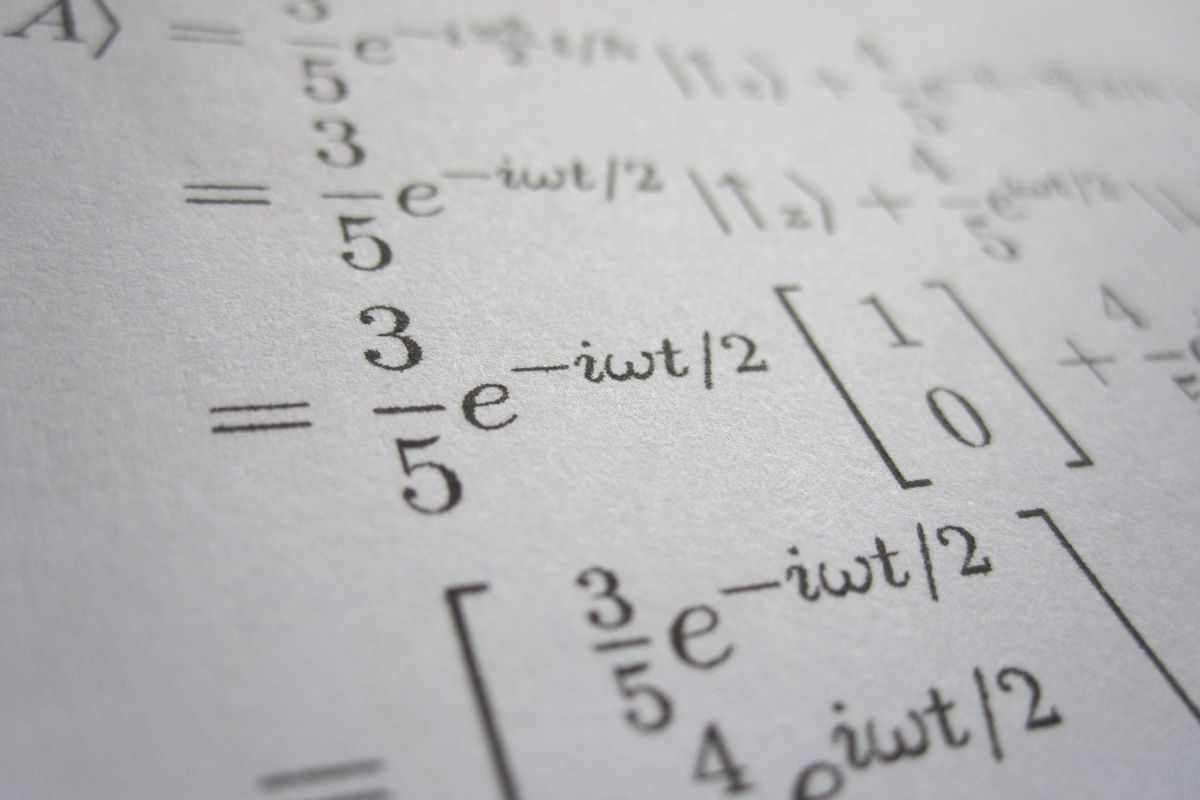 A⟩ = 3/5 e
= 3/5 e^{-iωt/2} |↑_z⟩ + 4/5 e^{iωt/2}
= 3/5 e^{-iωt/2} [1 0] + 4
= [ 3/5 e^{-iωt/2} ]
4 e^{iωt/2}